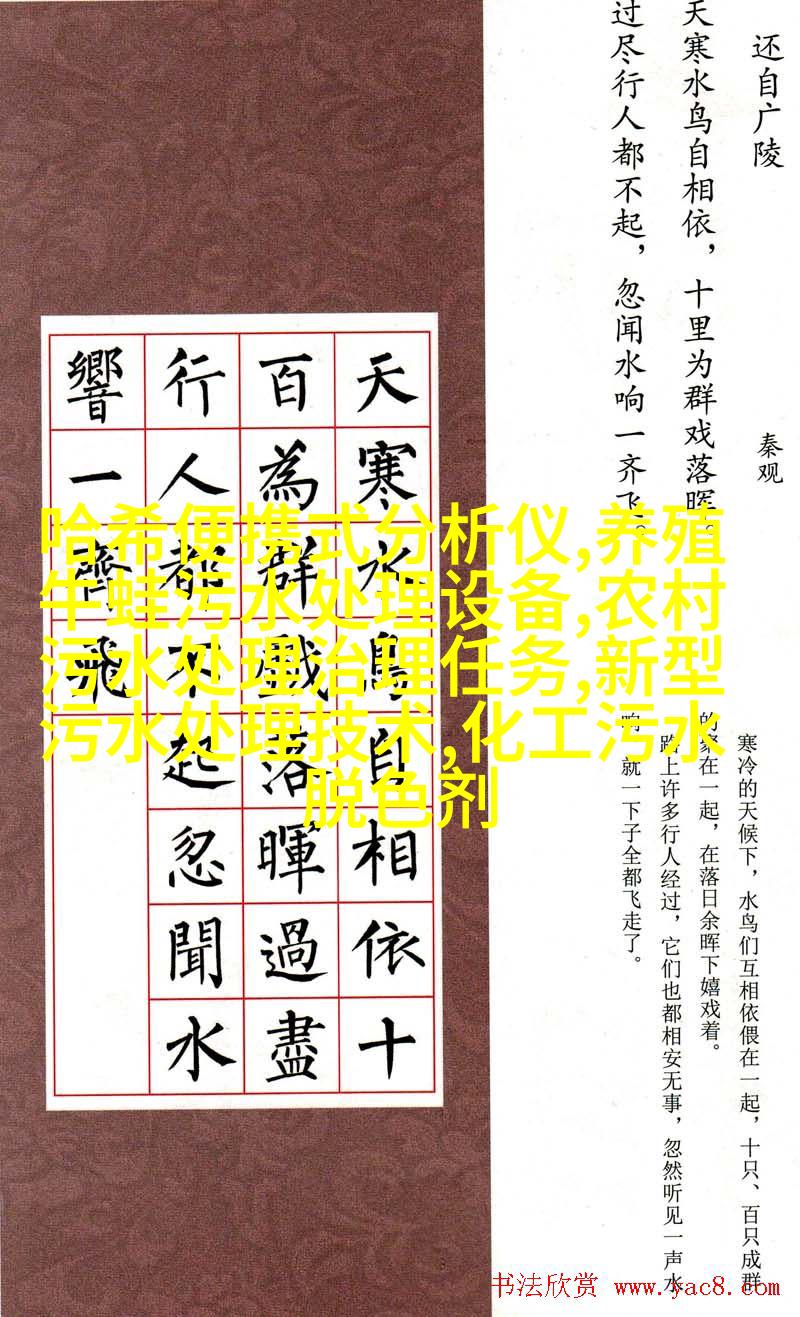 还自广陵
秦观
天寒水鸟自相依，十里为群戏落晖。
过尽行人都不起，忽闻水响一齐飞。
天寒水鳥自相依十
百為群戲落暉過盡
行人都不起忽聞水
響一齊飛
哈希便携式分析仪,养殖
牛蛙污水处理设备,农村
污水处理治理任务,新型
污水处理技术,化工污水
脱色剂
寒冷的天候下，水鸟们互相依偎在一起，十只、百只成群
的聚在一起，在落日余晖下嬉戏着。
路上许多行人经过，它们也都相安无事，忽然听见一声水
响，就一下子全都飞走了。
书法欣赏 www.yac8.com